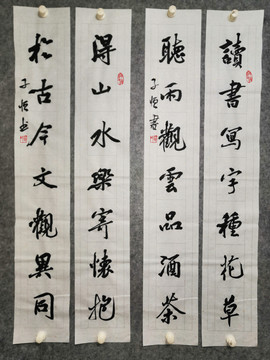 讀書寫字種花草
聽雨觀雲品酒茶
子恒書
得山水樂寄懷抱
於古今文觀異同
子恒書